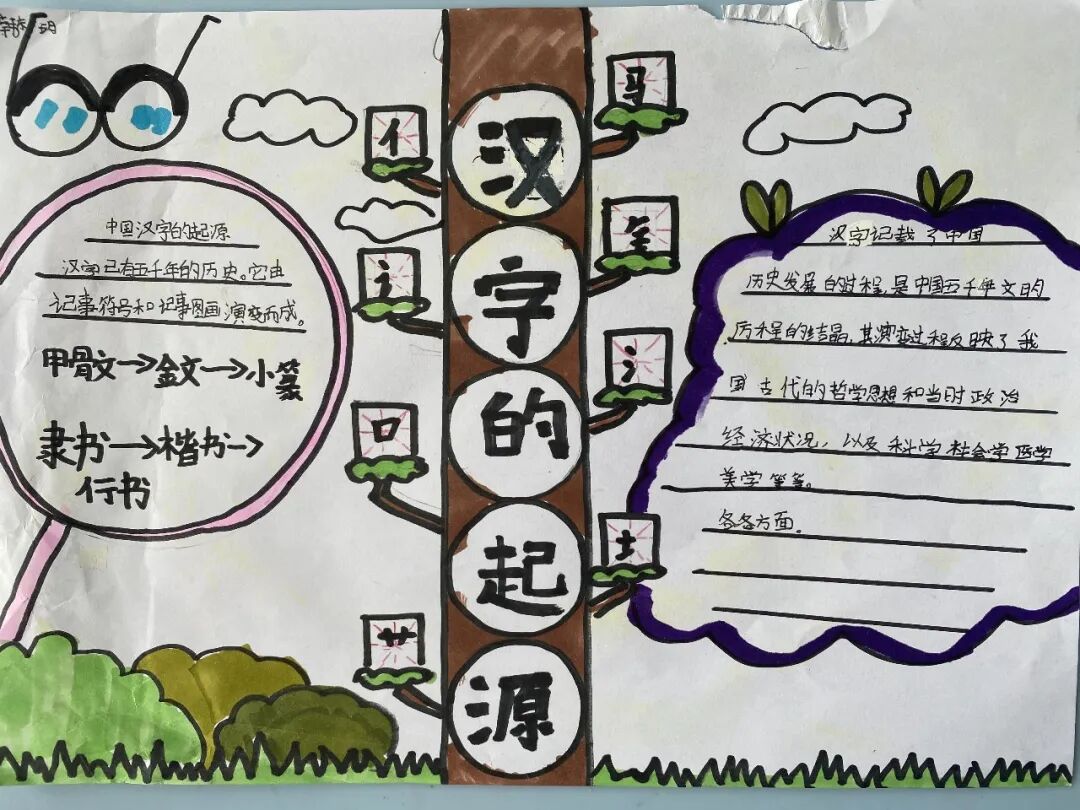 中国汉字的起源
汉字已有五千年的历史。它由
记事符号和记事图画演变而成。
甲骨文→金文→小篆
隶书→楷书→
行书
亻
辶
口
艹
汉
字
的
起
源
马
钅
氵
土
汉字记载了中国
历史发展的过程,是中国五千年文的
历程的结晶,其演变过程反映了我
国古代的哲学思想和当时政治
经济状况,以及科学社会学医学
美学等等。
各各方面。